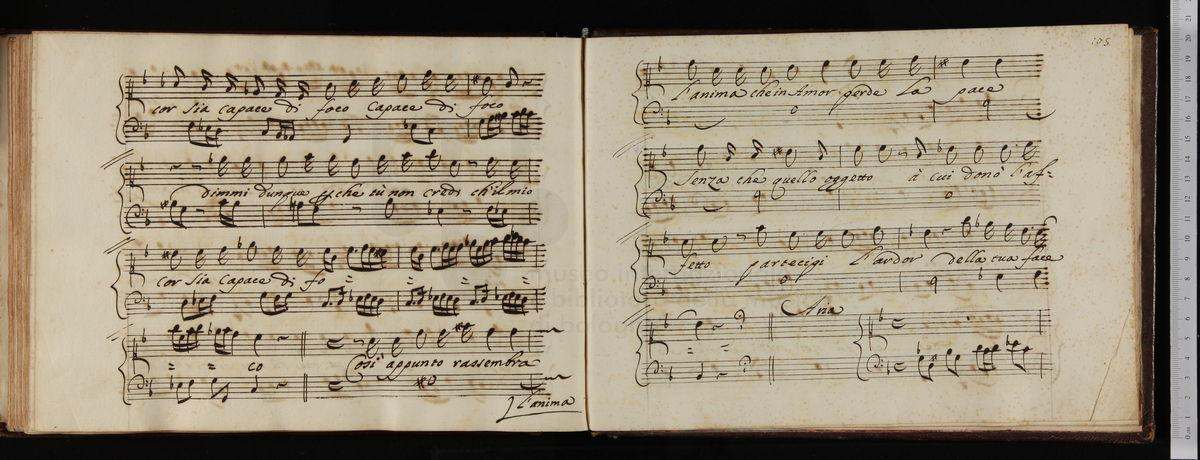 cor sia capace di foco capace di foco
dimmi dunque che tù non credi ch'il mio
cor sia capace di fo = =
= = co Così appunto rassembra
L'anima
105
L'anima che in Amor perde la pace
senza che quello oggetto à cui donò l'af=
fetto partecipi l'ardor della tua face
= = Aria
museo internazionale
biblioteca della musica
di bologna